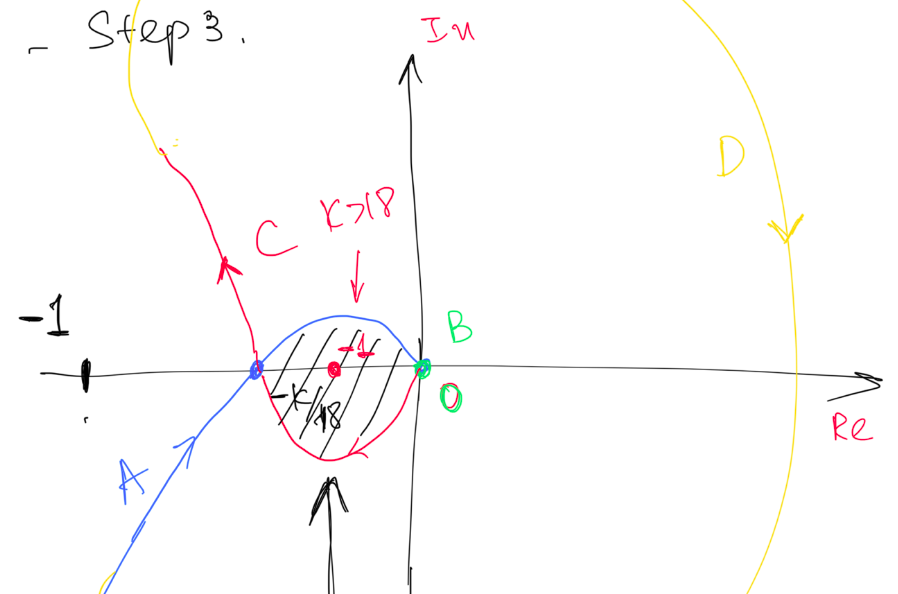 - Step 3.
Im
D
K>18
C
-1
B
-1
-K/18
O
Re
A